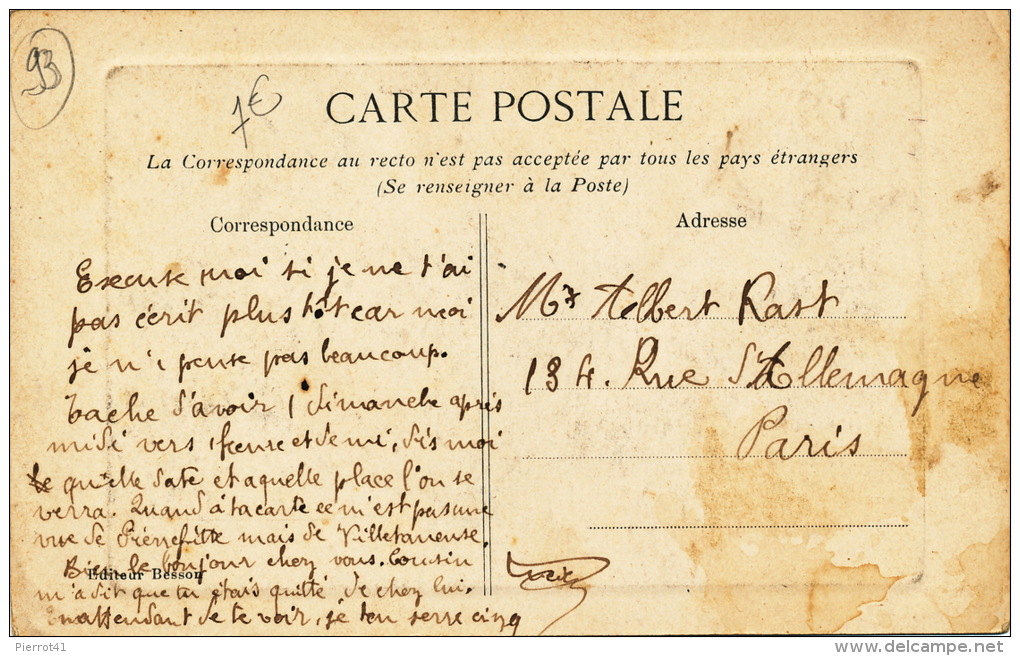 93
7€
CARTE POSTALE
La Correspondance au recto n'est pas acceptée par tous les pays étrangers
(Se renseigner à la Poste)
Correspondance
Excuse moi si je ne t'ai
pas écrit plus tôt car moi
je n'i pense pas beaucoup.
Tache d'avoir 1 dimanche après
midi vers 1 heure et demi, dis moi
qu'elle date et a quelle place l'on se
verra. Quand à ta carte ce n'est pas une
vue de Pierrefitte mais de Villetaneuse.
Bien le bonjour chez vous. Cousin
m'a dit que tu étais quitté de chez lui.
En attendant de te voir, je ten serre cinq
Editeur Besson
Adresse
Mr Albert Rast
134. Rue d'Allemagne
Paris
Pierrot41
delcampe.net